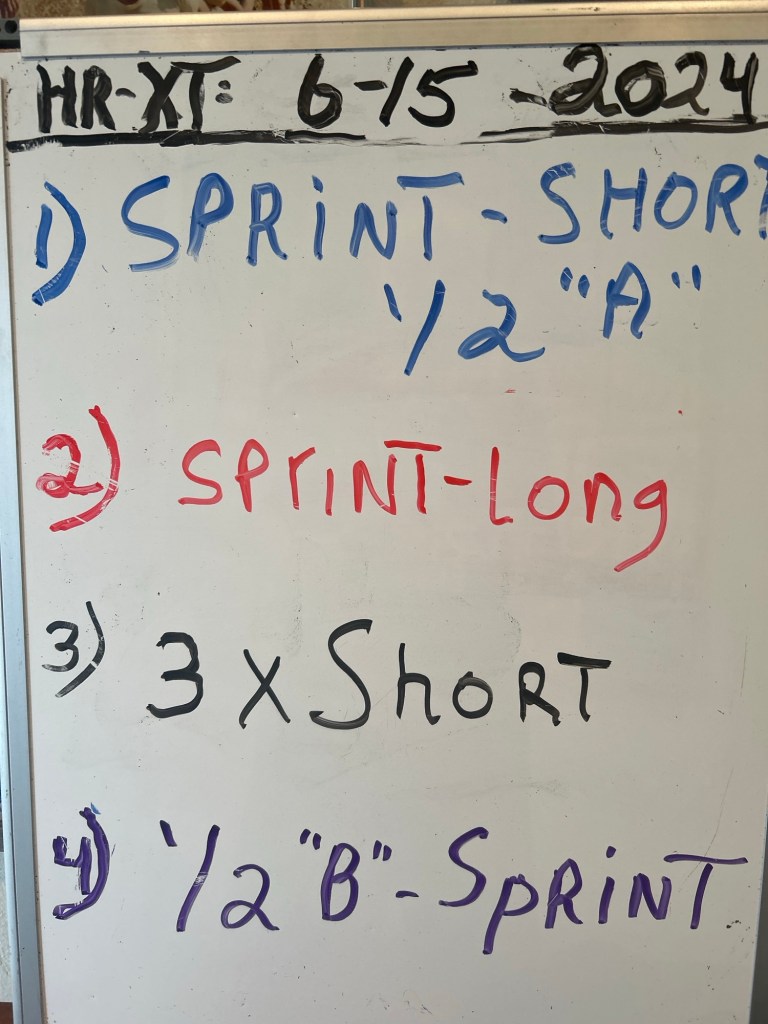 HR-XT: 6-15-2024
1) SPRiNT - SHORT
1/2 "A"
2) SPrINT-Long
3) 3 x ShORT
4) 1/2 "B" - SpRiNT